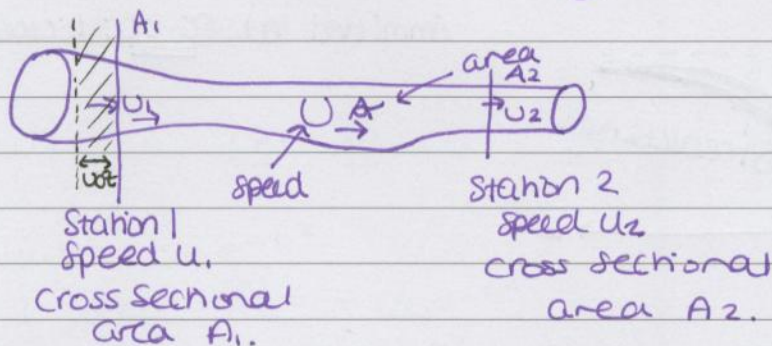 A1
area
A2
U1
U
A
U2
Uδt
speed
Station 1
speed U1
cross sectional
area A1.
Station 2
speed U2
cross sectional
area A2.